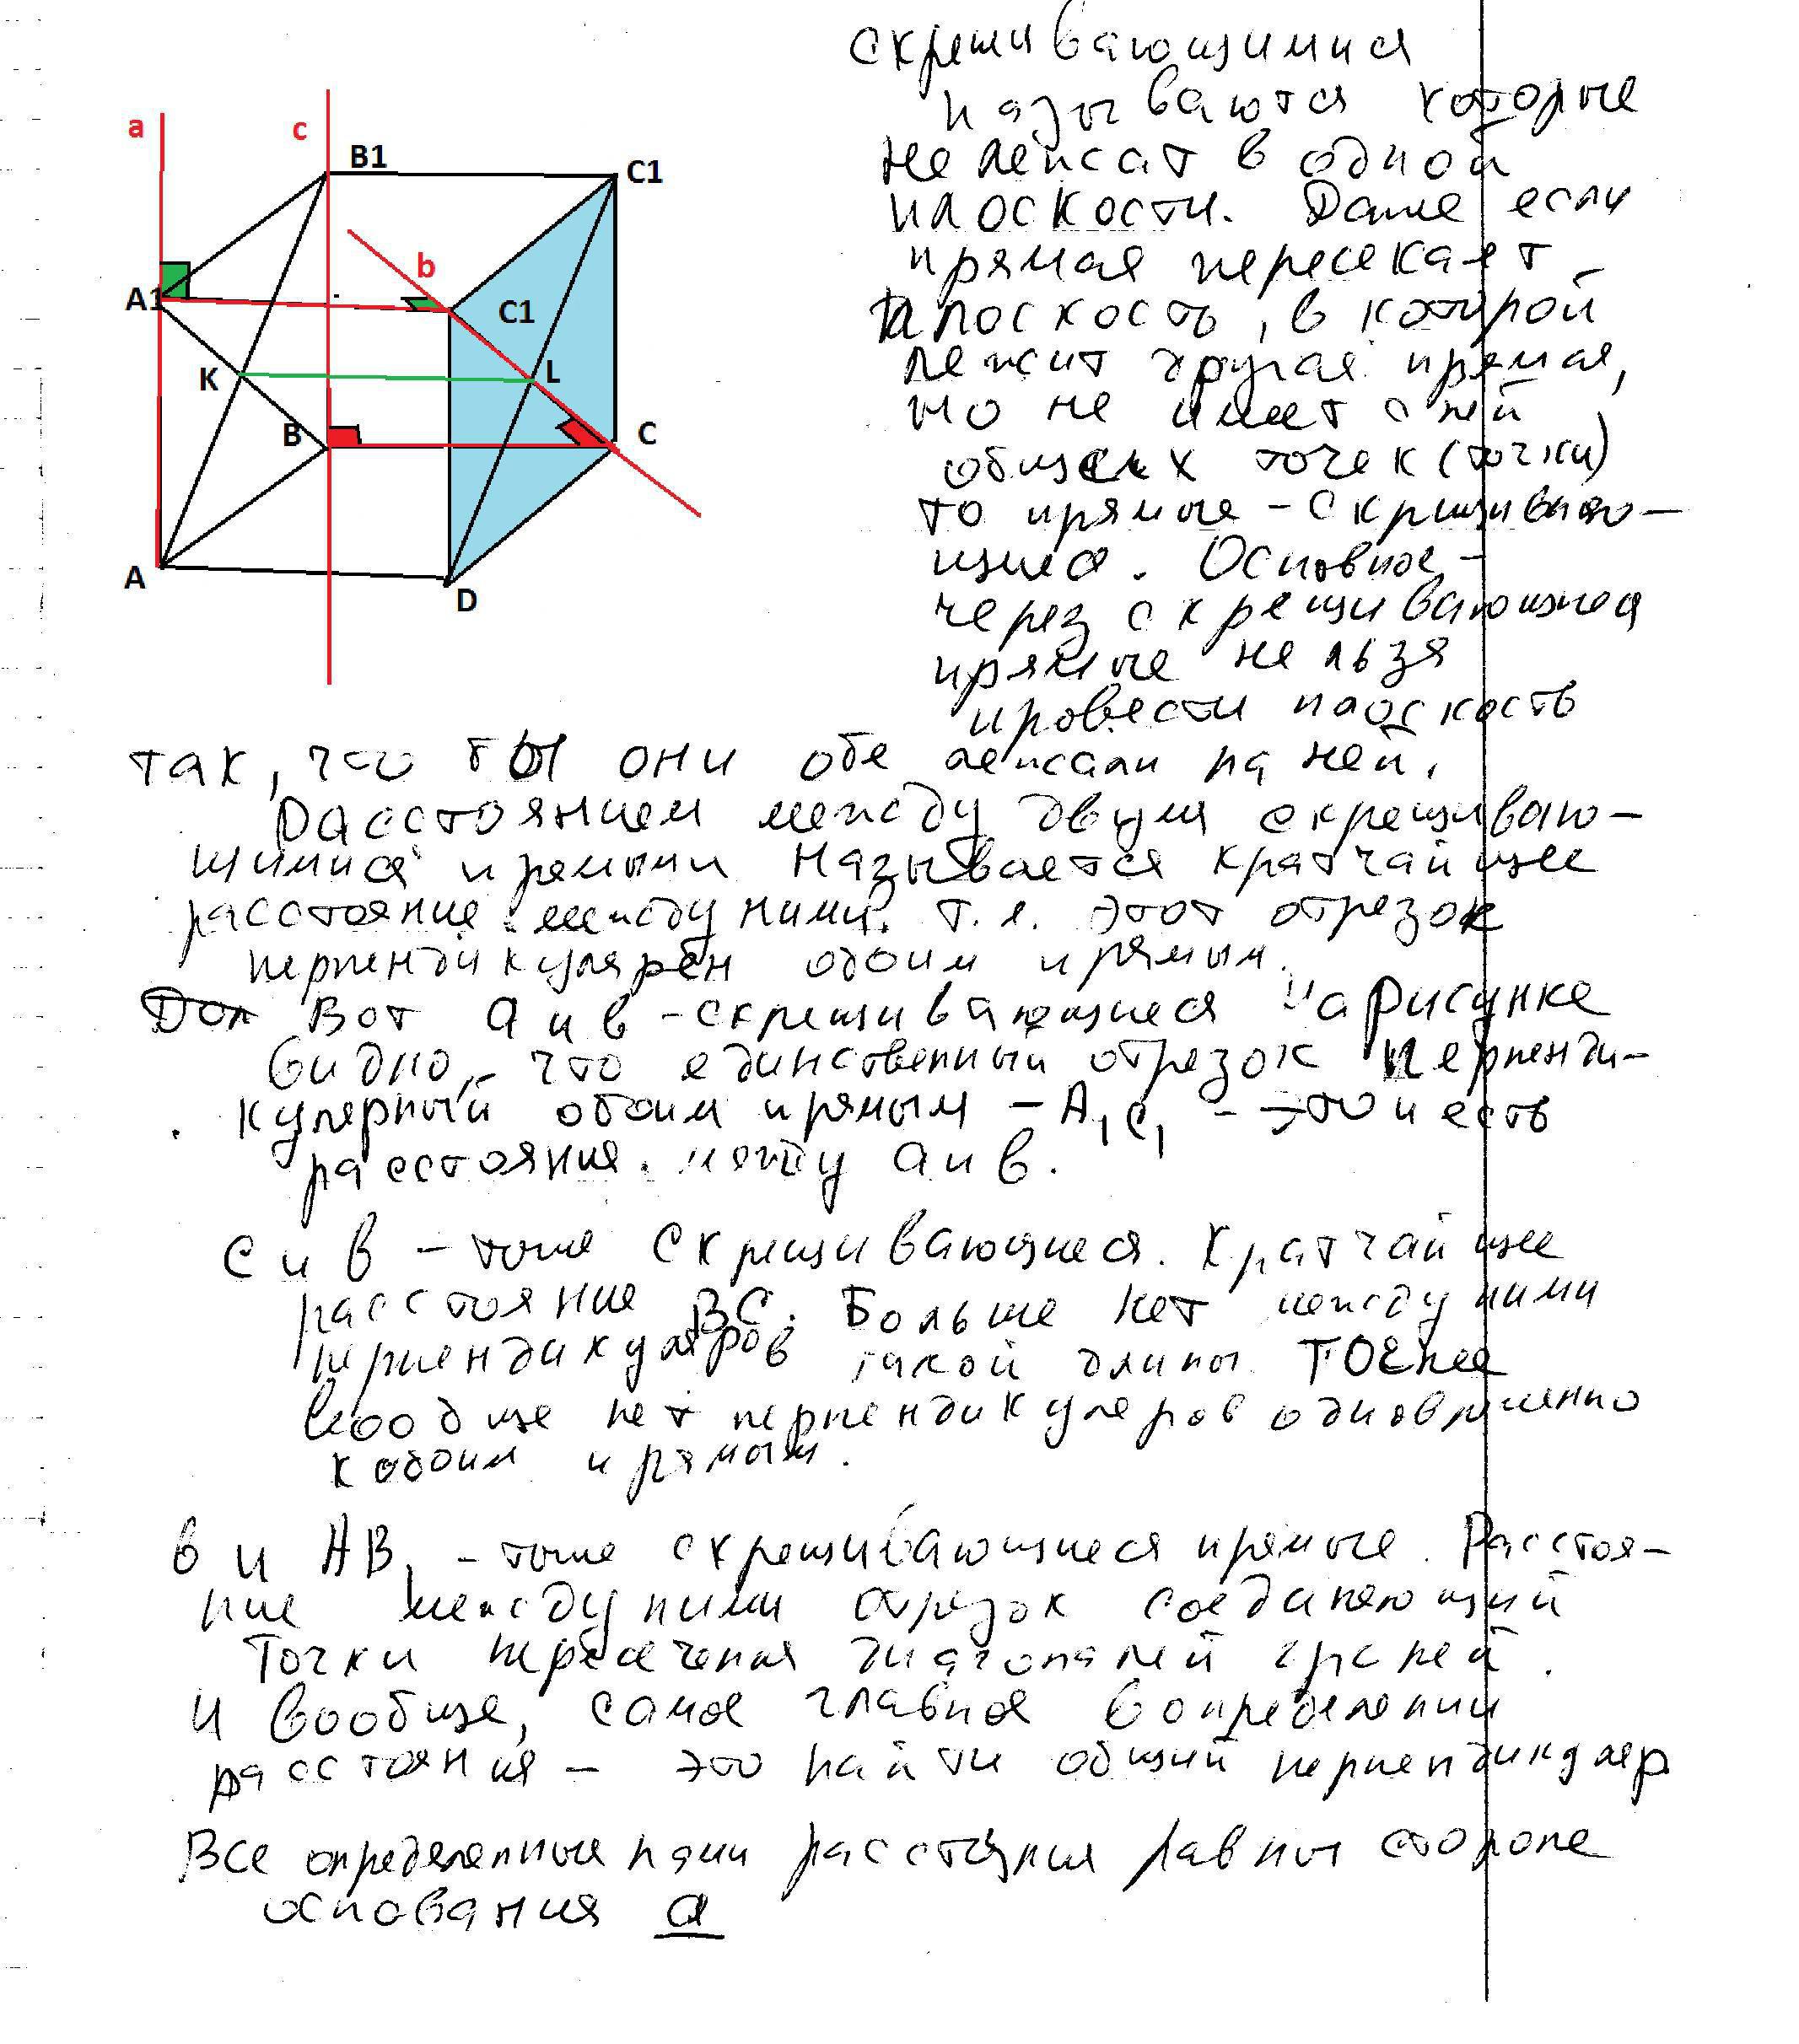 a
c
B1
C1
b
A1
C1
K
L
B
C
A
D
скрещивающимися
называются которые
не лежат в одной
плоскости. Даже если
прямая пересекает
плоскость, в которой
лежит другая прямая,
но не имеет с ней
общих точек (точки)
то прямые - скрещиваю-
щиеся. Основное -
через скрещивающиеся
прямые нельзя
провести плоскость
так, что бы они обе лежали на ней.
Расстоянием между двумя скрещиваю-
щимися прямыми называется кратчайшее
расстояние между ними. т.е. этот отрезок
перпендикулярен обоим прямым.
Вот а и в - скрещивающиеся на рисунке
видно, что единственный отрезок перпенди-
кулярный обоим прямым - A1C1 - это и есть
расстояние между а и в.
с и в - тоже скрещивающиеся. Кратчайшее
расстояние ВС. Больше нет между ними
перпендикуляров такой длины. точнее
вообще нет перпендикуляров одновременно
к обоим прямым.
в и АВ1 - тоже скрещивающиеся прямые. Расстоя-
ние между ними отрезок соединяющий
точки пересечения диагоналей граней.
И вообще, самое главное в определении
расстояния - это найти общий перпендикуляр
Все определенные нами расстояния равны стороне
основания а